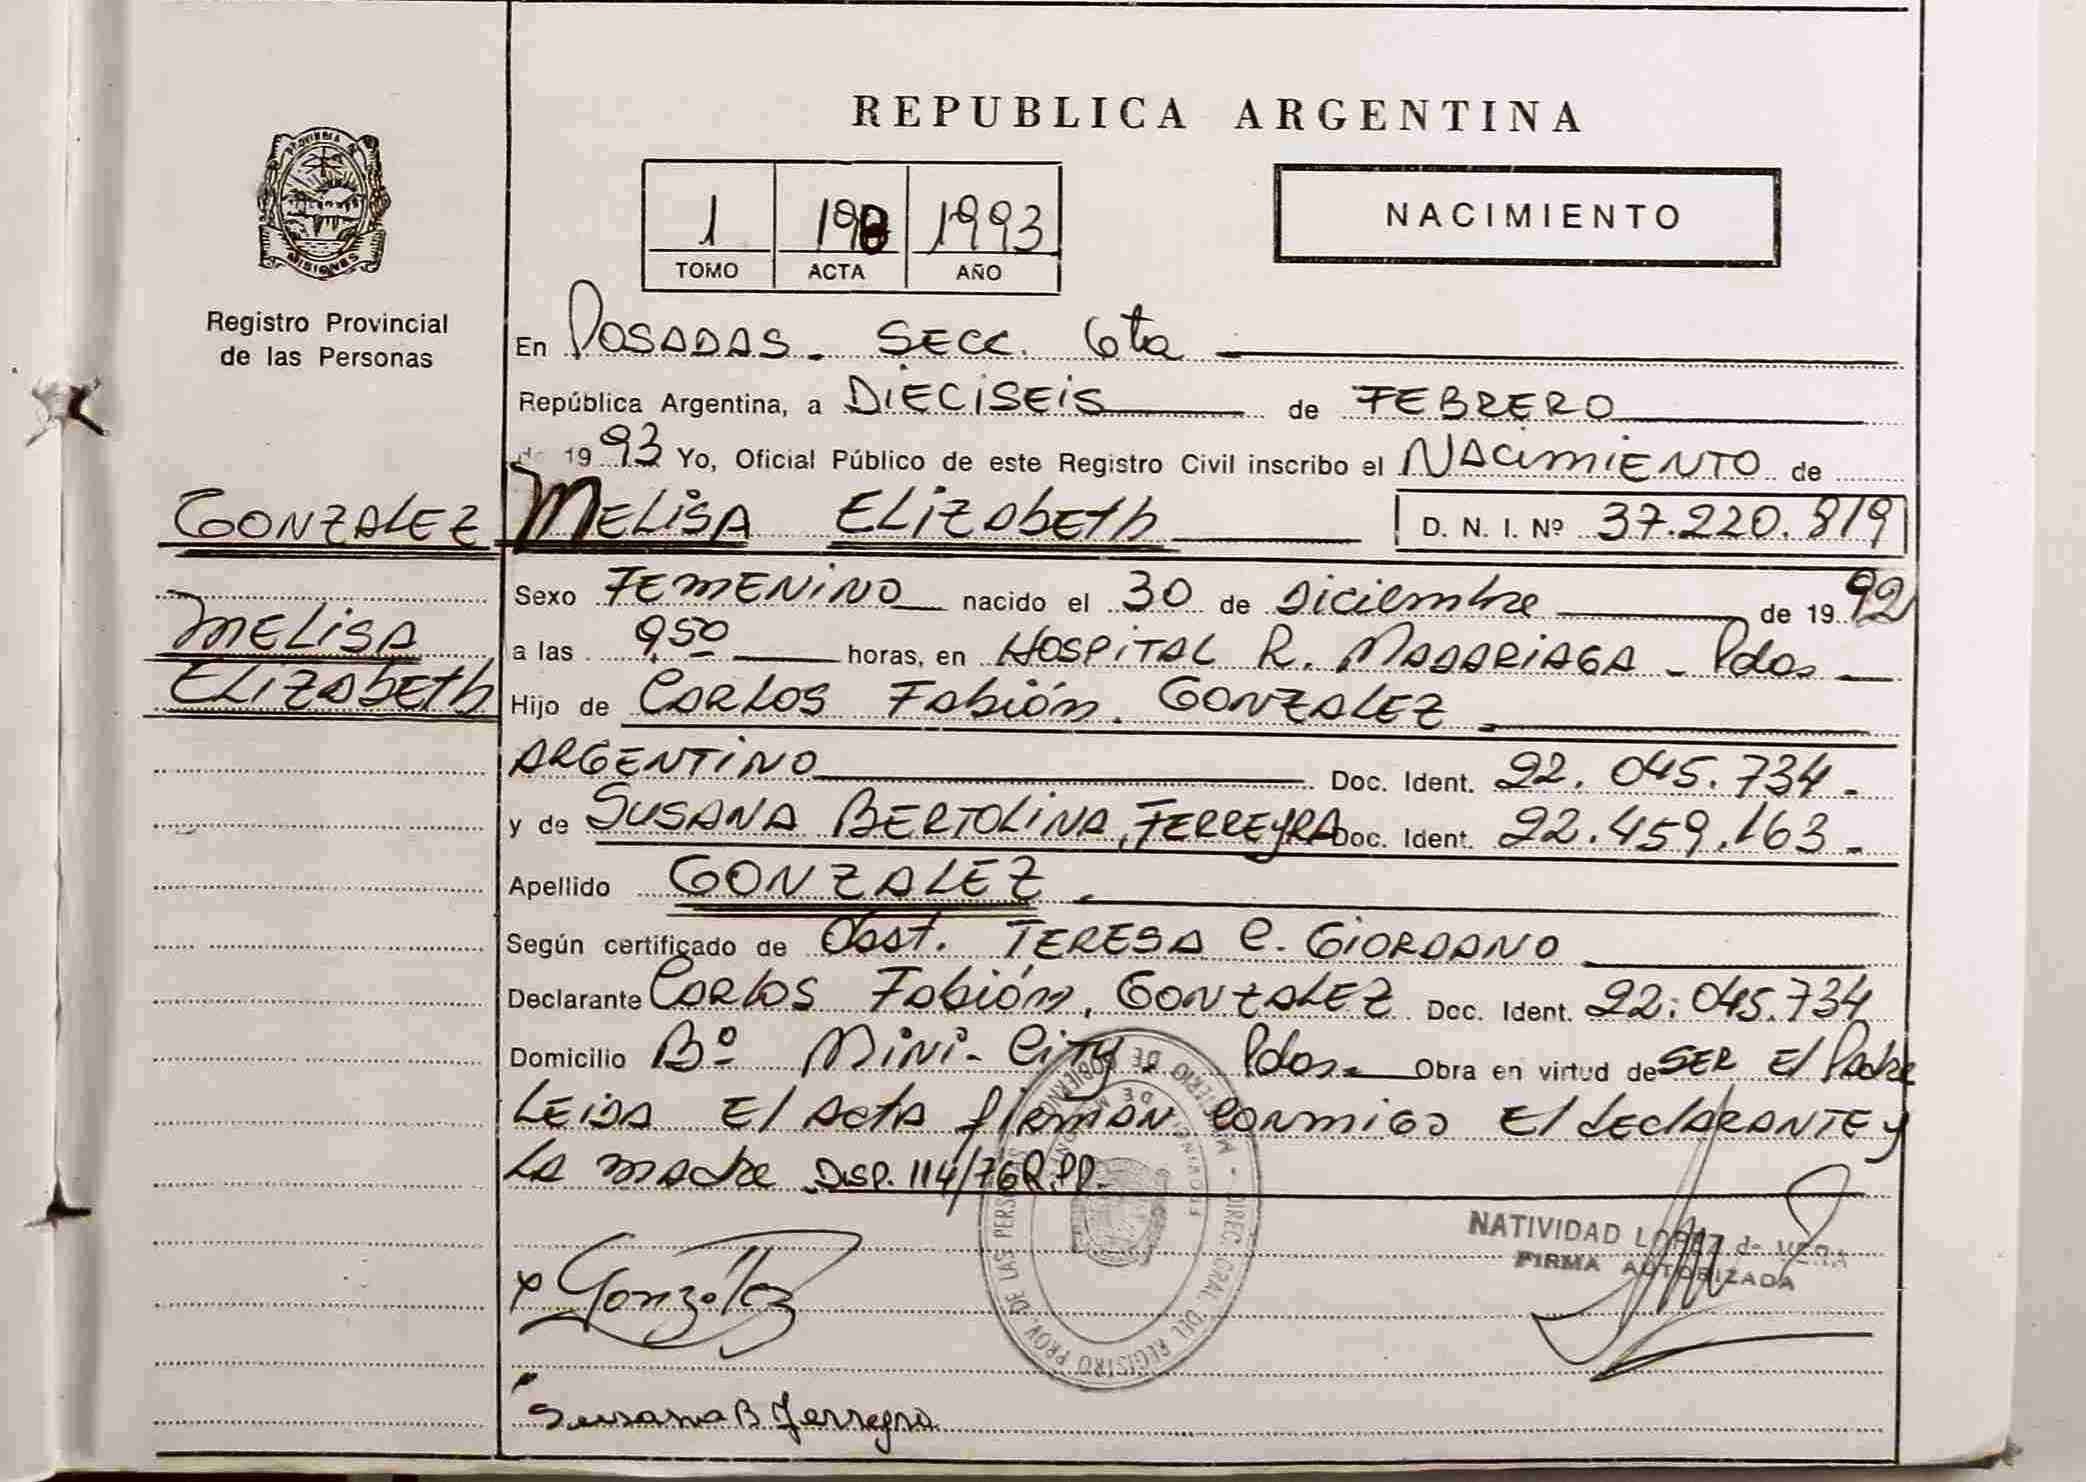 REPUBLICA ARGENTINA
PROVINCIA DE
MISIONES
Registro Provincial
de las Personas
1 19 1993
TOMO ACTA AÑO
NACIMIENTO
En POSADAS. SECC. 6ta
República Argentina, a DIECISEIS de FEBRERO
de 1993 Yo, Oficial Público de este Registro Civil inscribo el NACIMIENTO de
GONZALEZ MELISA ELIZAbETh D. N. I. Nº 37.220.819
Sexo FEMENINO nacido el 30 de diciembre de 1992
MELISA
a las 9,50 horas, en HOSPITAL R. MADARIAGA - Pdas
ELIZAbETh
Hijo de CARLOS FAbián. GONZALEZ
ARGENTINO Doc. Ident. 22.045.734.
y de SUSANA BERTOLINA, FERREYRA Doc. Ident. 22.459.163.
Apellido GONZALEZ.
Según certificado de Obst. TERESA C. GIORDANO
Declarante CARLOS FAbián, GONZALEZ Doc. Ident. 22.045.734
Domicilio Bº Mini-City - Pdas. Obra en virtud de SER El Padre
LEIDA El ActA fIRMAN CONMIGO El dEclARANTE y
LA MAdre DISP. 114/76R.PP.
MINISTERIO DE GOBIERNO - DIREC. GRAL. DEL REGISTRO PROV. DE LAS PERSONAS
PROVINCIA DE MISIONES
NATIVIDAD LOPEZ de VERA
FIRMA AUTORIZADA
x González
Susana B Ferreyra